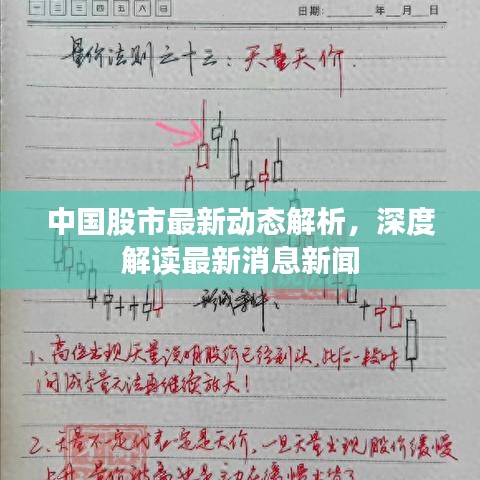 一 二 三 四 五 六 日
日期: 年 月 日
量价法则之十三:天量天价.
中国股市最新动态解析,深度
解读最新消息新闻
形成条件:
1、高位出现天量说明股价已经到头,此后一段时
间成交量无法再继续放大!
2、天量不一定代表一定是天价,一旦天量出现股价缓慢
上升,量价